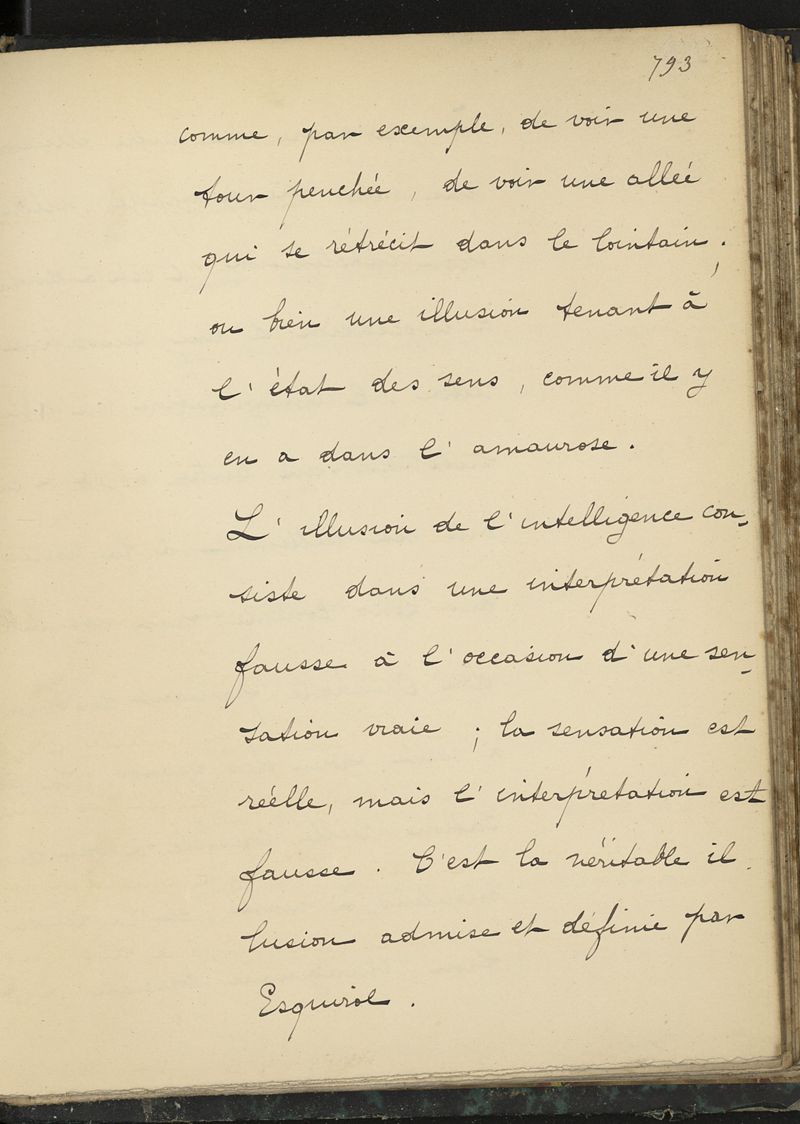 793
comme, par exemple, de voir une
tour penchée, de voir une alleé
qui se rétrécit dans le lointain;
ou bien une illusion tenant à
l'état des sens, comme il y
en a dans l'amaurose.
L'illusion de l'intelligence con-
siste dans une interprétation
fausse à l'occasion d'une sen-
sation vraie; la sensation est
réelle, mais l'interprétation est
fausse. C'est la véritable il-
lusion admise et définie par
Esquirol.